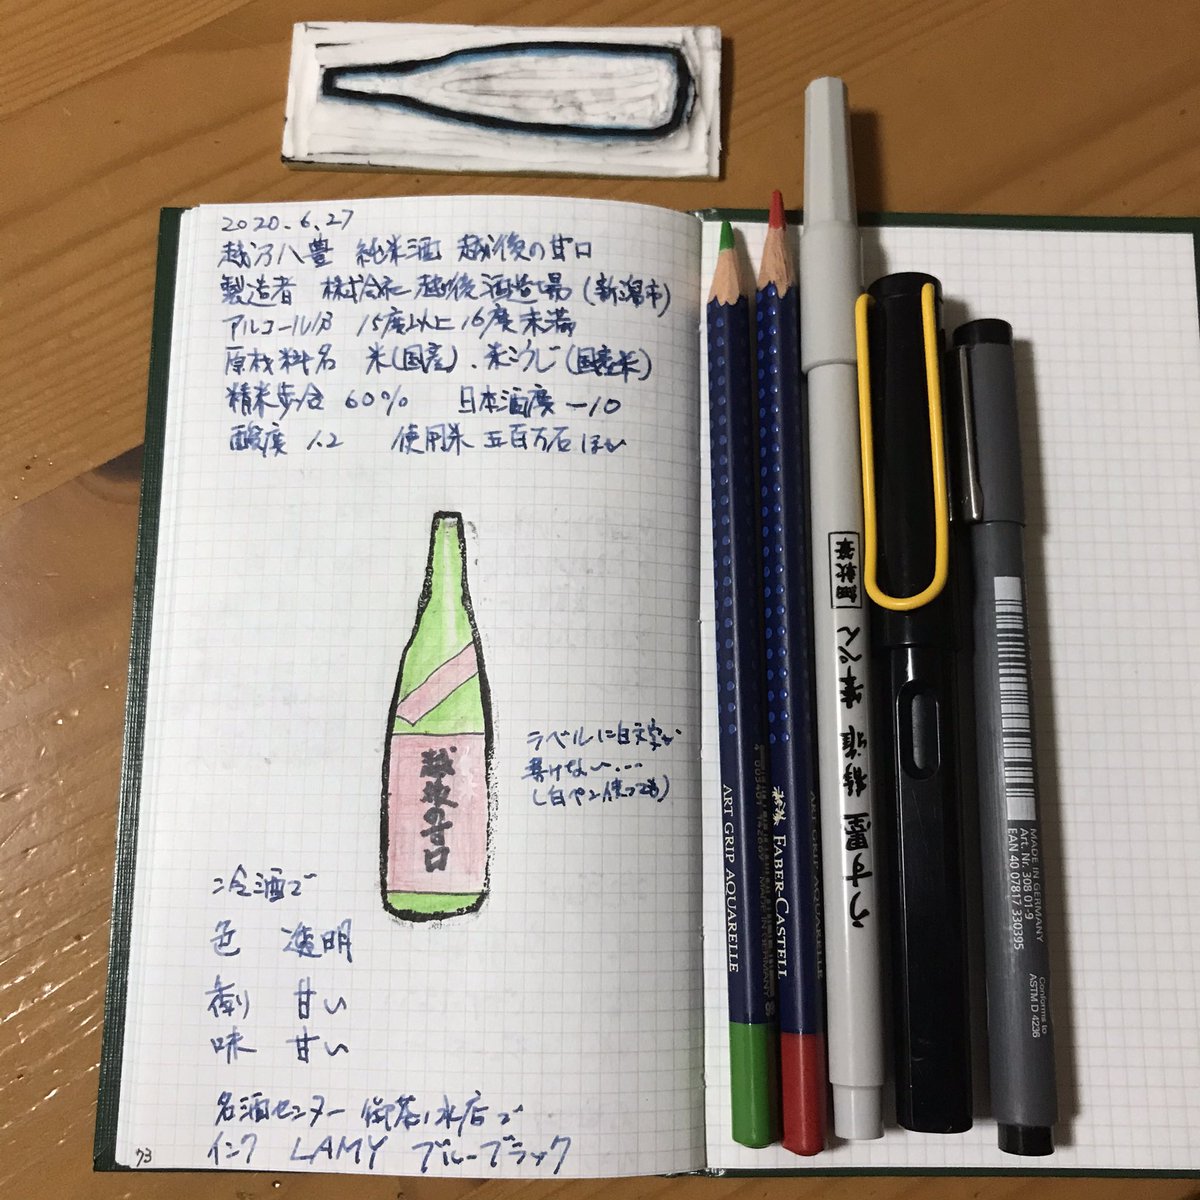 2020.6.27
越乃八豊 純米酒 越後の甘口
製造者 株式会社越後酒造場(新潟市)
アルコール分 15度以上16度未満
原材料名 米(国産)、米こうじ(国産米)
精米歩合 60% 日本酒度 -10
酸度 1.2 使用米 五百万石ほか
越後の甘口
ラベルに白文字が
書けない....
(白ペン使っても)
冷酒で
色 透明
香り 甘い
味 甘い
名酒センター 御茶ノ水店で
インク LAMY ブルーブラック
73
ART GRIP AQUARELLE
FABER-CASTELL
ART GRIP AQUARELLE
うす墨 筆ぺん
細 軟筆
MADE IN GERMANY
Art. Nr. 308 01-9
EAN 40 07817 330395
Conforms to
ASTM D 4236